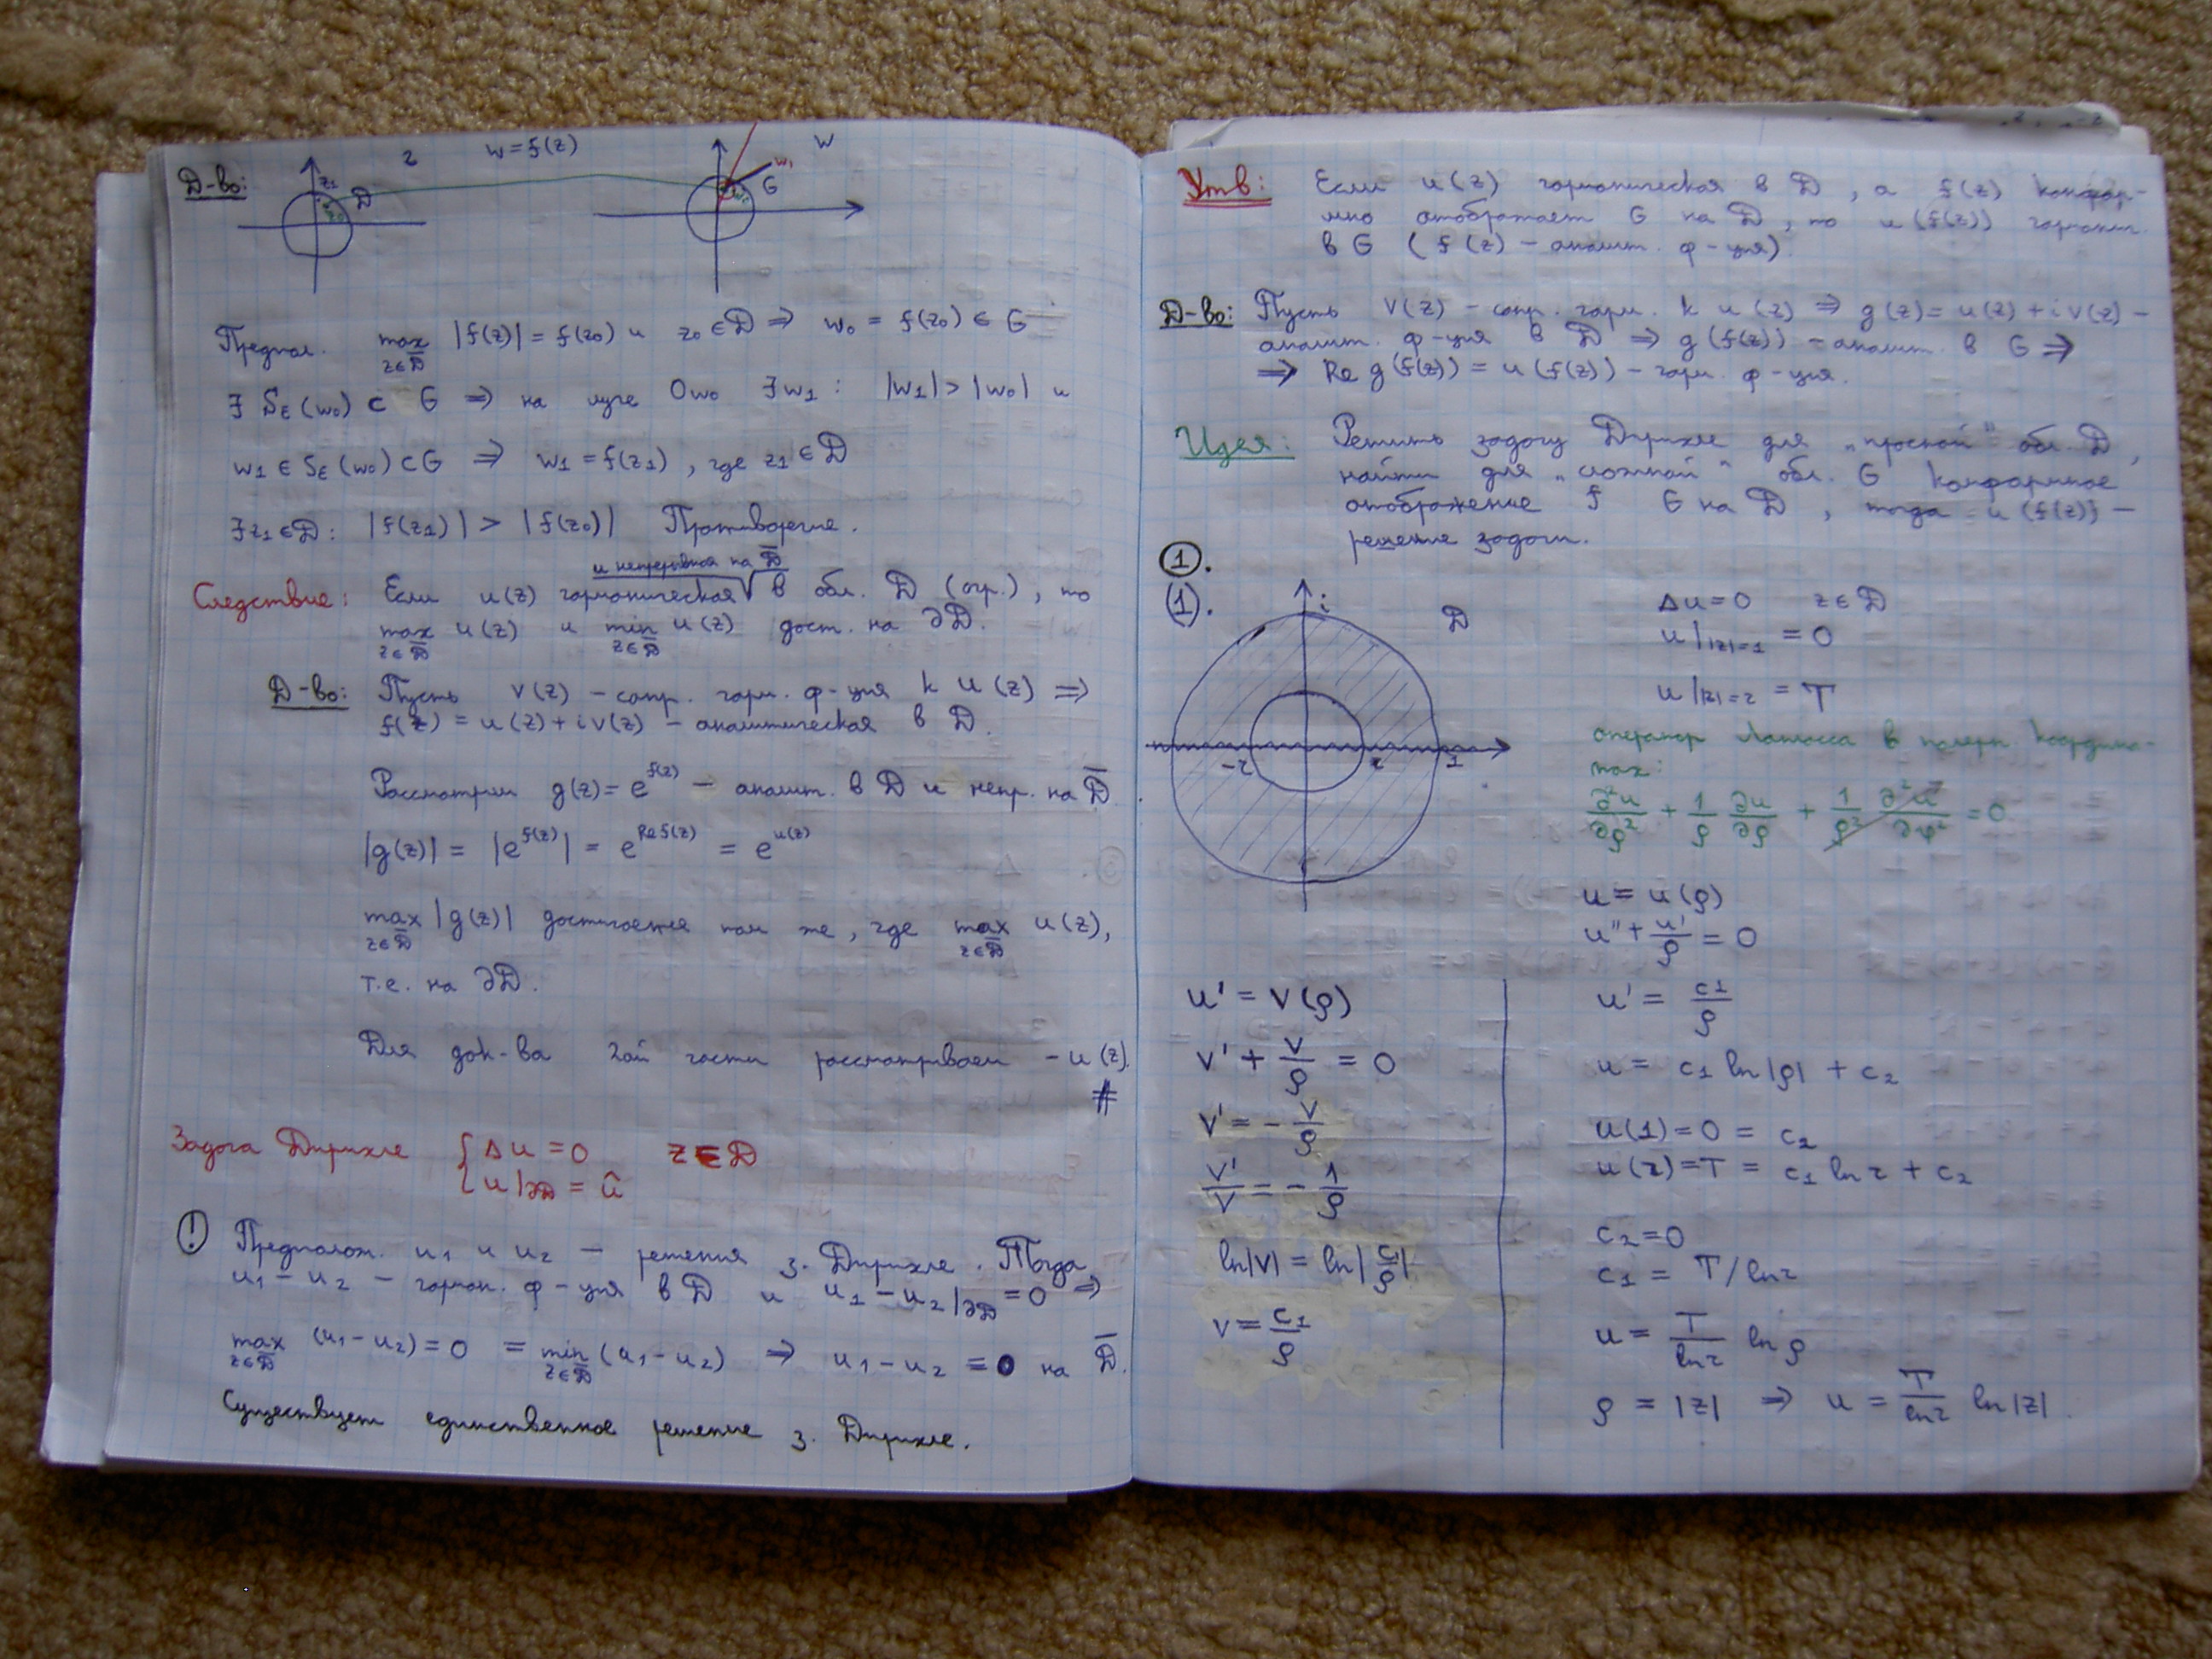 Д-во:
z w=f(z) w
z₁ D
w₁ G
Предпол. max |f(z)| = f(z₀) и z₀ ∈ D ⇒ w₀ = f(z₀) ∈ G
z∈D̅
∃ Sε(w₀) ⊂ G ⇒ на луче Ow₀ ∃w₁ : |w₁| > |w₀| и
w₁ ∈ Sε(w₀) ⊂ G ⇒ w₁ = f(z₁) , где z₁ ∈ D
∃z₁∈D : |f(z₁)| > |f(z₀)| Противоречие.
и непрерывная на D̅
Следствие: Если u(z) гармоническая √ в обл. D (огр.) , то
max u(z) и min u(z) дост. на ∂D.
z∈D̅ z∈D̅
Д-во: Пусть v(z) – сопр. гарм. ф-ция к u(z) ⇒
f(z) = u(z) + iv(z) – аналитическая в D.
Рассмотрим g(z) = e^f(z) – аналит. в D и непр. на D̅
|g(z)| = |e^f(z)| = e^Re f(z) = e^u(z)
max |g(z)| достигается там же , где max u(z),
z∈D̅ z∈D̅
т.е. на ∂D.
Для док-ва 2ой части рассматриваем –u(z).
#
Задача Дирихле { Δu = 0 z ∈ D
u|∂D = û
! Предполож. u₁ и u₂ – решения з. Дирихле. Тогда
u₁ – u₂ – гармон. ф-ция в D и u₁ – u₂|∂D = 0 ⇒
max (u₁ – u₂) = 0 = min (u₁ – u₂) ⇒ u₁ – u₂ = 0 на D̅.
z∈D̅ z∈D̅
Существует единственное решение з. Дирихле.
Утв: Если u(z) гармоническая в D , а f(z) конфор-
мно отображает G на D , то u(f(z)) гармонич.
в G ( f(z) – аналит. ф-ция)
Д-во: Пусть v(z) – сопр. гарм. к u(z) ⇒ g(z) = u(z) + iv(z) –
аналит. ф-ция в D ⇒ g(f(z)) – аналит. в G ⇒
⇒ Re g(f(z)) = u(f(z)) – гарм. ф-ция.
Идея: Решить задачу Дирихле для „простой" обл. D ,
найти для „сложной" обл. G конформное
отображение f G на D , тогда u(f(z)) –
решение задачи.
①.
(1).
i D
-r r 1
Δu = 0 z∈D
u||z|=1 = 0
u||z|=r = T
оператор Лапласа в полярн. координа-
тах:
∂²u/∂ρ² + 1/ρ ∂u/∂ρ + 1/ρ² ∂²u/∂φ² = 0
u = u(ρ)
u'' + u'/ρ = 0
u' = v(ρ)
v' + v/ρ = 0
v' = – v/ρ
v'/v = – 1/ρ
ln|v| = ln|c₁/ρ|
v = c₁/ρ
u' = c₁/ρ
u = c₁ ln|ρ| + c₂
u(1) = 0 = c₂
u(r) = T = c₁ ln r + c₂
c₂ = 0
c₁ = T/ln r
u = T/ln r ln ρ
ρ = |z| ⇒ u = T/ln r ln|z|.